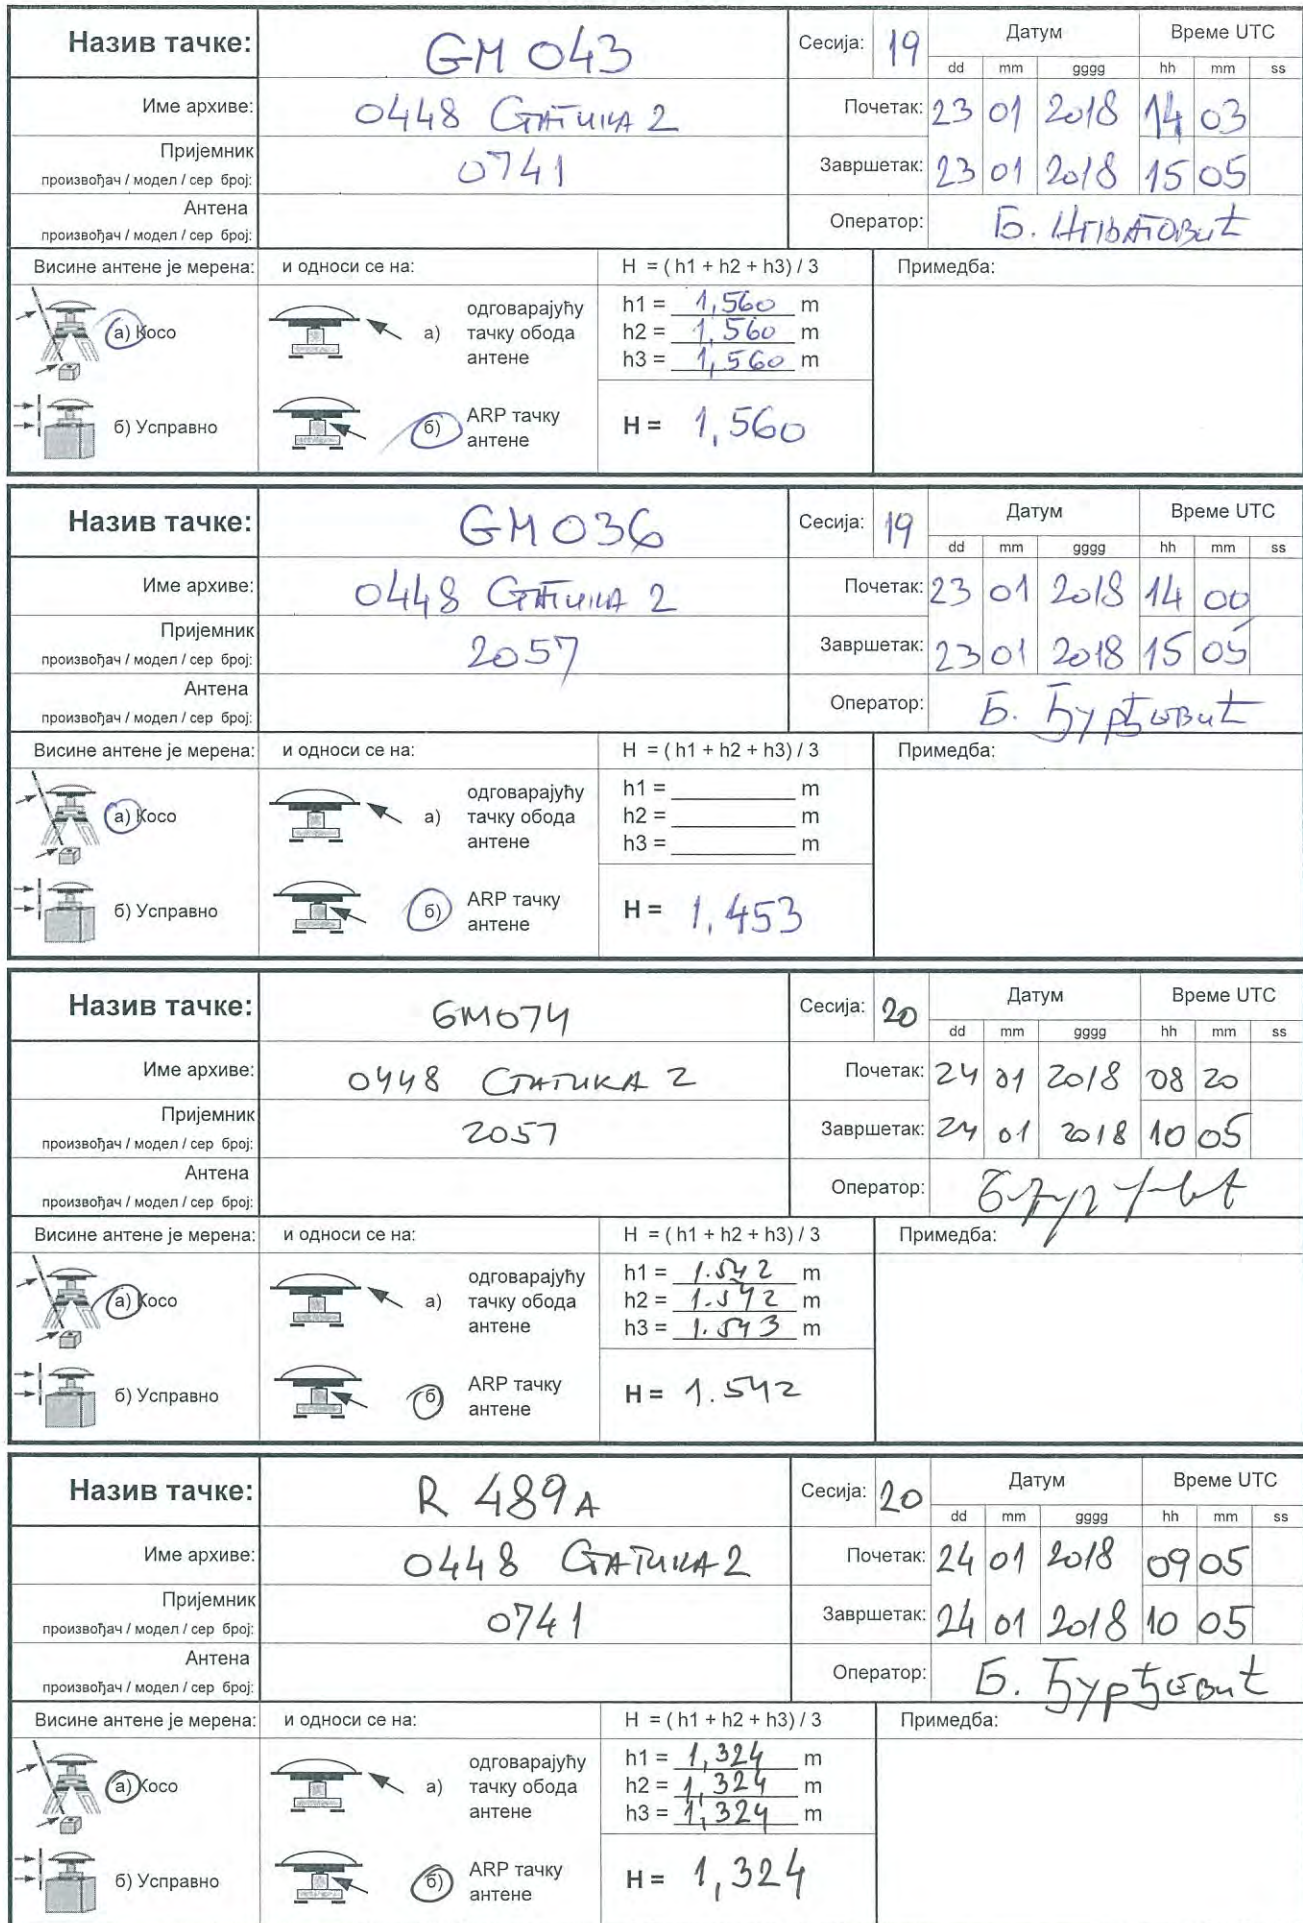 Назив тачке: GM 043 Сесија: 19 Датум Време UTC
dd mm gggg hh mm ss
Име архиве: 0448 Статика 2 Почетак: 23 01 2018 14 03
Пријемник
произвођач / модел / сер број: 0741 Завршетак: 23 01 2018 15 05
Антена
произвођач / модел / сер број: Оператор: Б. Игњатовић
Висине антене је мерена: и односи се на: H = ( h1 + h2 + h3 ) / 3 Примедба:
а) Косо а) одговарајућу тачку обода антене
h1 = 1,560 m
h2 = 1,560 m
h3 = 1,560 m
б) Усправно б) ARP тачку антене H = 1,560
Назив тачке: GM 036 Сесија: 19 Датум Време UTC
dd mm gggg hh mm ss
Име архиве: 0448 Статика 2 Почетак: 23 01 2018 14 00
Пријемник
произвођач / модел / сер број: 2057 Завршетак: 23 01 2018 15 05
Антена
произвођач / модел / сер број: Оператор: Б. Ђурђевић
Висине антене је мерена: и односи се на: H = ( h1 + h2 + h3 ) / 3 Примедба:
а) Косо а) одговарајућу тачку обода антене
h1 = m
h2 = m
h3 = m
б) Усправно б) ARP тачку антене H = 1,453
Назив тачке: GM074 Сесија: 20 Датум Време UTC
dd mm gggg hh mm ss
Име архиве: 0448 Статика 2 Почетак: 24 01 2018 08 20
Пријемник
произвођач / модел / сер број: 2057 Завршетак: 24 01 2018 10 05
Антена
произвођач / модел / сер број: Оператор:
Висине антене је мерена: и односи се на: H = ( h1 + h2 + h3 ) / 3 Примедба:
а) Косо а) одговарајућу тачку обода антене
h1 = 1.542 m
h2 = 1.542 m
h3 = 1.543 m
б) Усправно б) ARP тачку антене H = 1.542
Назив тачке: R 489A Сесија: 20 Датум Време UTC
dd mm gggg hh mm ss
Име архиве: 0448 Статика 2 Почетак: 24 01 2018 09 05
Пријемник
произвођач / модел / сер број: 0741 Завршетак: 24 01 2018 10 05
Антена
произвођач / модел / сер број: Оператор: Б. Ђурђевић
Висине антене је мерена: и односи се на: H = ( h1 + h2 + h3 ) / 3 Примедба:
а) Косо а) одговарајућу тачку обода антене
h1 = 1,324 m
h2 = 1,324 m
h3 = 1,324 m
б) Усправно б) ARP тачку антене H = 1,324